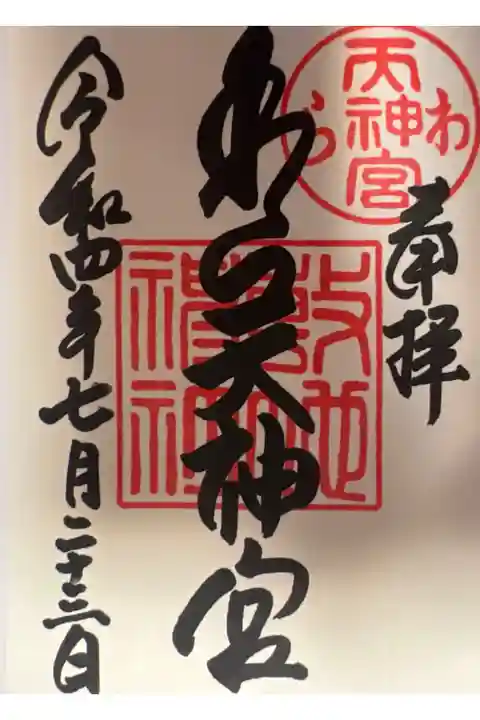 奉拝
わら
天神宮
わら天神宮
令和四年七月二十三日